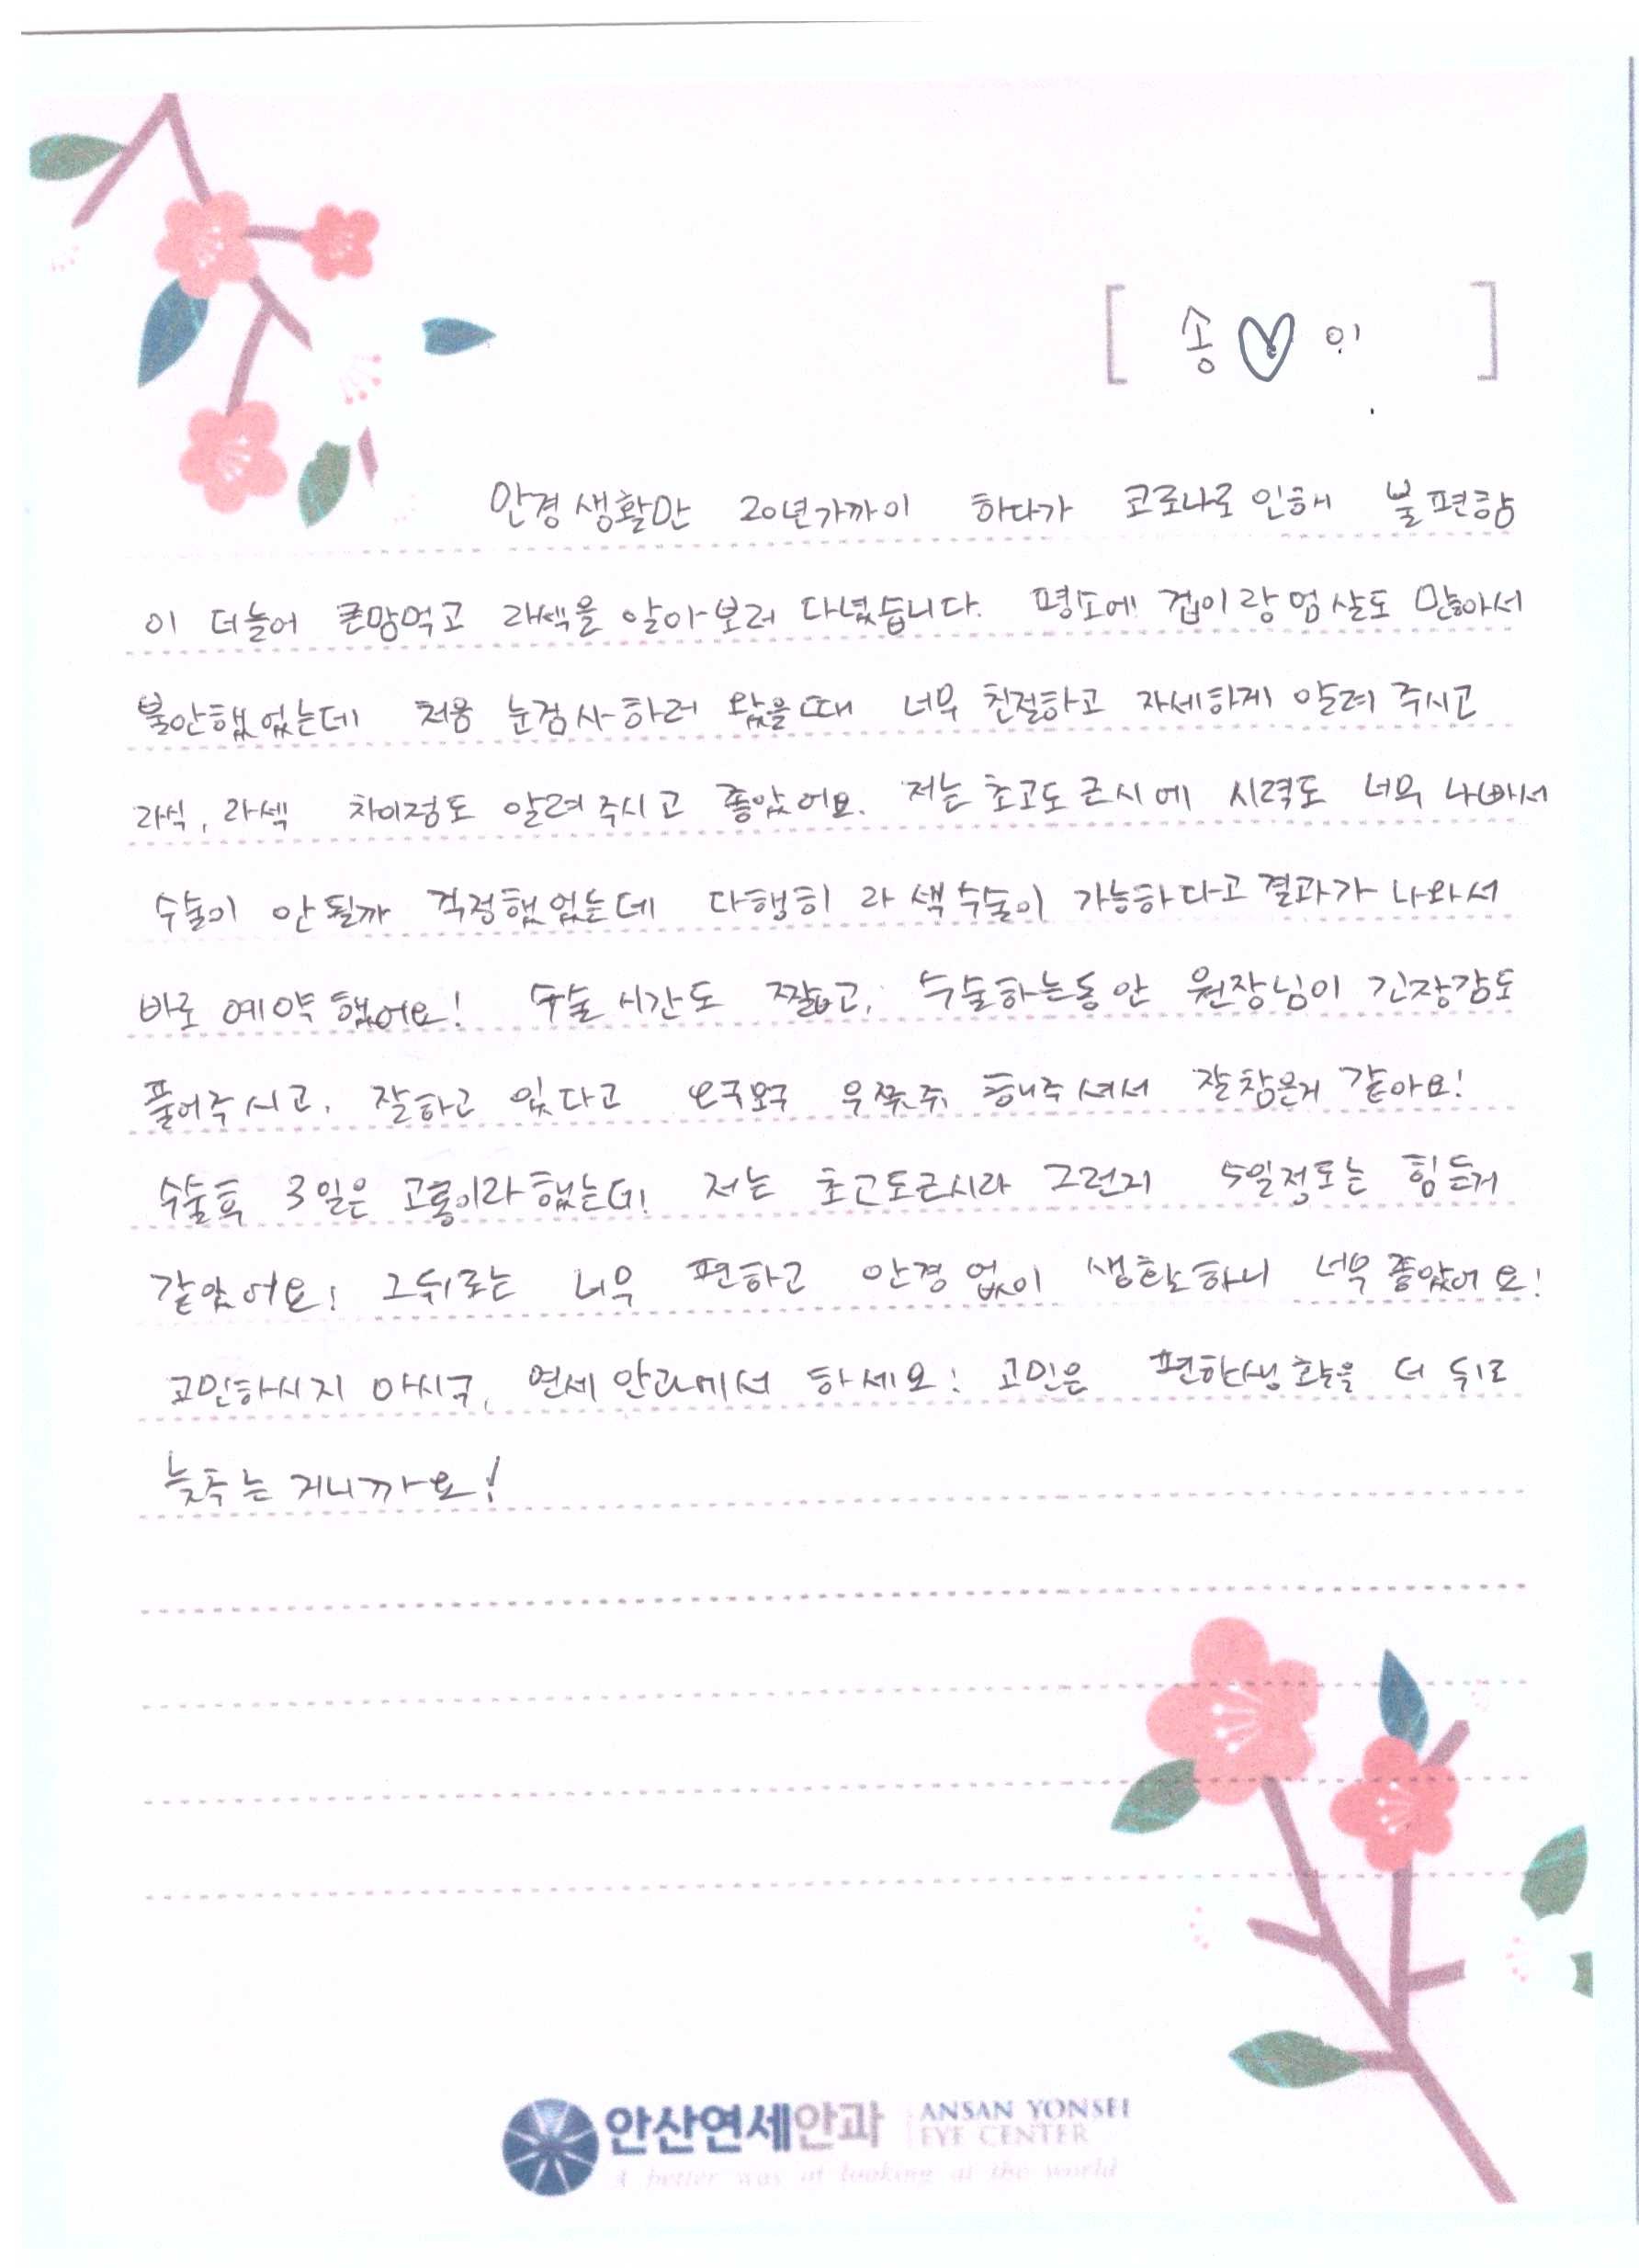 [ 송♡이 ]
안경생활만 20년가까이 하다가 코로나로인해 불편함
이 더늘어 큰맘먹고 라섹을 알아보러 다녔습니다. 평소에 겁이랑 엄살도 많아서
불안했었는데 처음 눈검사하러 왔을때 너무 친절하고 자세하게 알려주시고
라식, 라섹 차이점도 알려주시고 좋았어요. 저는 초고도근시에 시력도 너무 나빠서
수술이 안될까 걱정했었는데 다행히 라섹수술이 가능하다고 결과가 나와서
바로 예약했어요! 수술시간도 짧고, 수술하는동안 원장님이 긴장감도
풀어주시고, 잘하고 있다고 우쭈쭈 해주셔서 잘참은거 같아요!
수술후 3일은 고통이라했는데 저는 초고도근시라 그런지 5일정도는 힘든거
같았어요! 그뒤로는 너무 편하고 안경없이 생활하니 너무좋았어요!
고민하시지 마시구, 연세안과에서 하세요! 고민은 편한생활을 더 뒤로
늦추는거니까요!
안산연세안과 ANSAN YONSEI
EYE CENTER
A better way of looking at the world